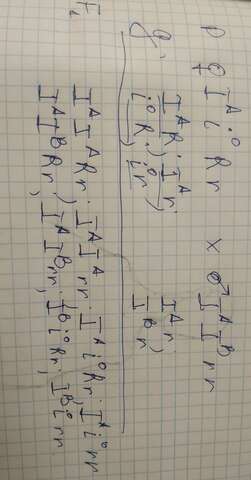 P ♀ Iᴬi⁰Rr × ♂ IᴬIᴮrr
g. IᴬR; Iᴬr; Iᴬr;
i⁰R; i⁰r Iᴮr;
F₁ IᴬIᴬRr; IᴬIᴬrr; Iᴬi⁰Rr; Iᴬi⁰rr
IᴬIᴮRr; IᴬIᴮrr; Iᴮi⁰Rr; Iᴮi⁰rr